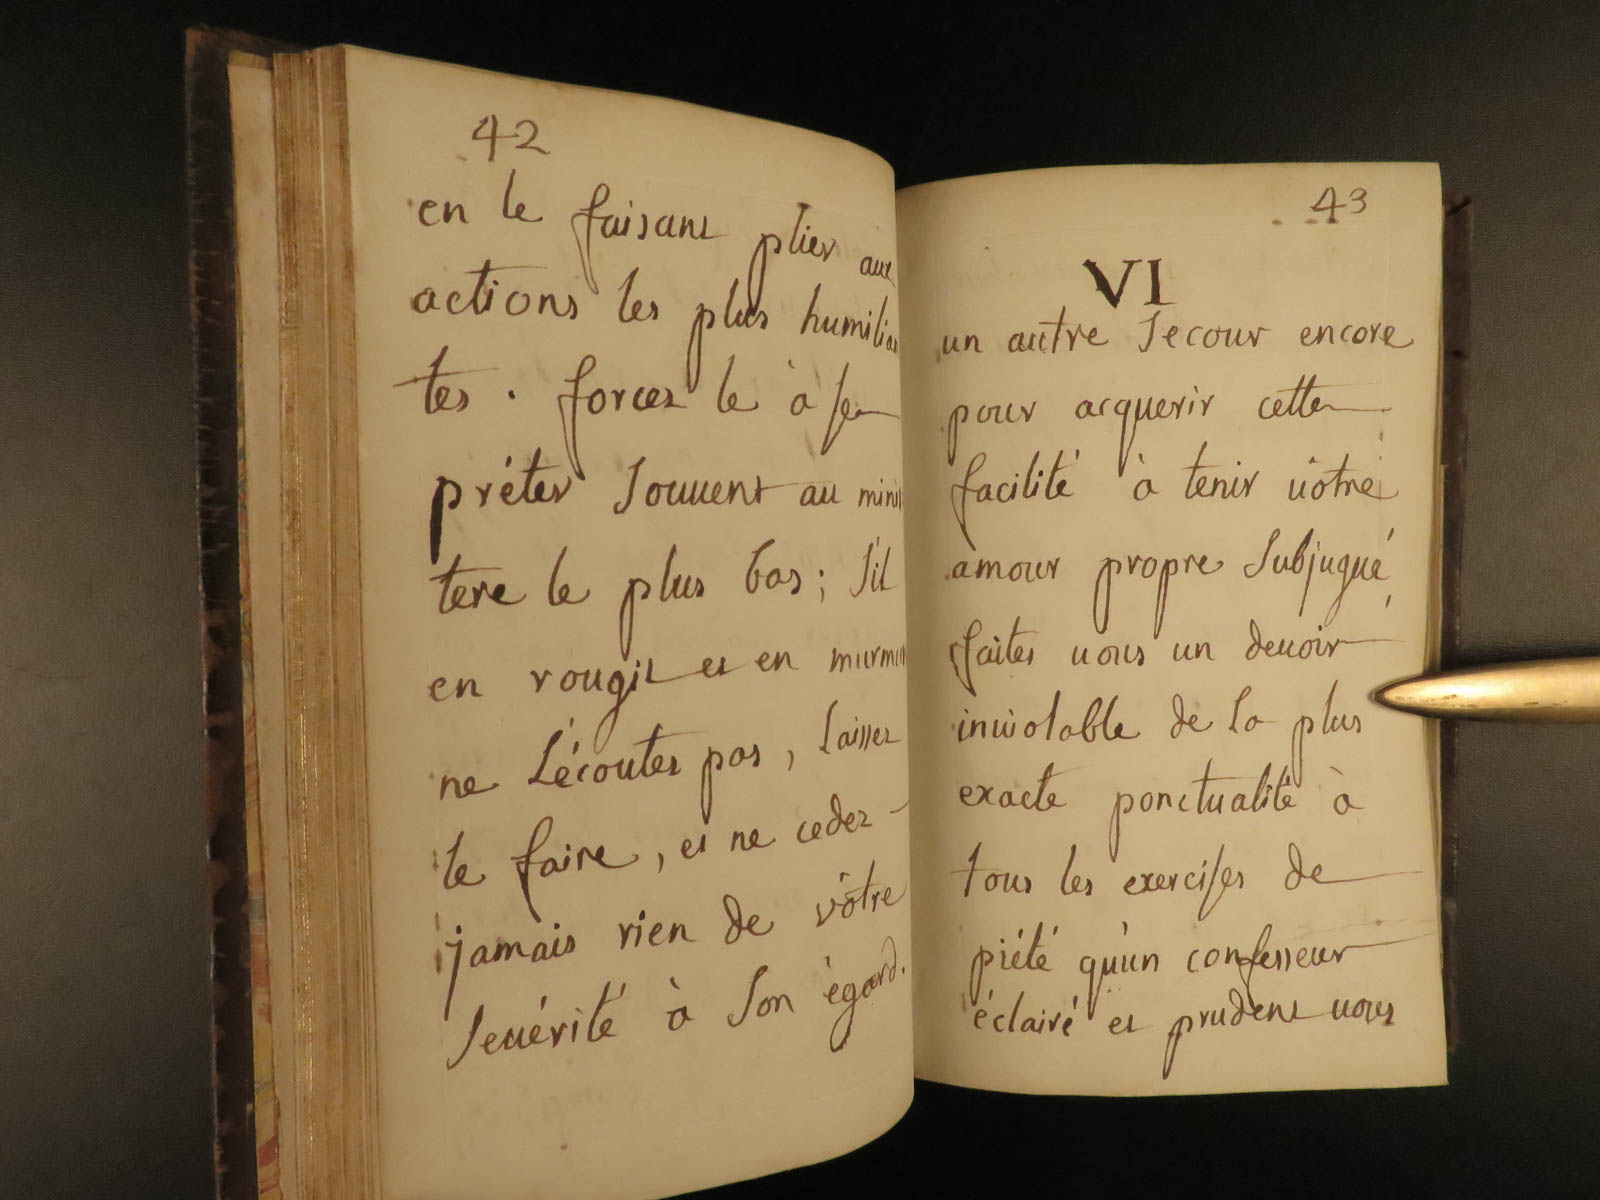 42
en le faisant plier aux
actions les plus humilian
tes. forcez le à se
préter souuent au minis
tere le plus bas; s'il
en rougit et en murmur
ne l'écoutez pas, laissez
le faire, et ne cedez
jamais rien de vôtre
seuérité à son égard.
43
VI
un autre secour encore
pour acquerir cette
facilité à tenir uôtre
amour propre subjugué,
faites uous un deuoir
inuiolable de la plus
exacte ponctualité à
tous les exercises de
piété qu'un confesseur
éclairé et prudent uous